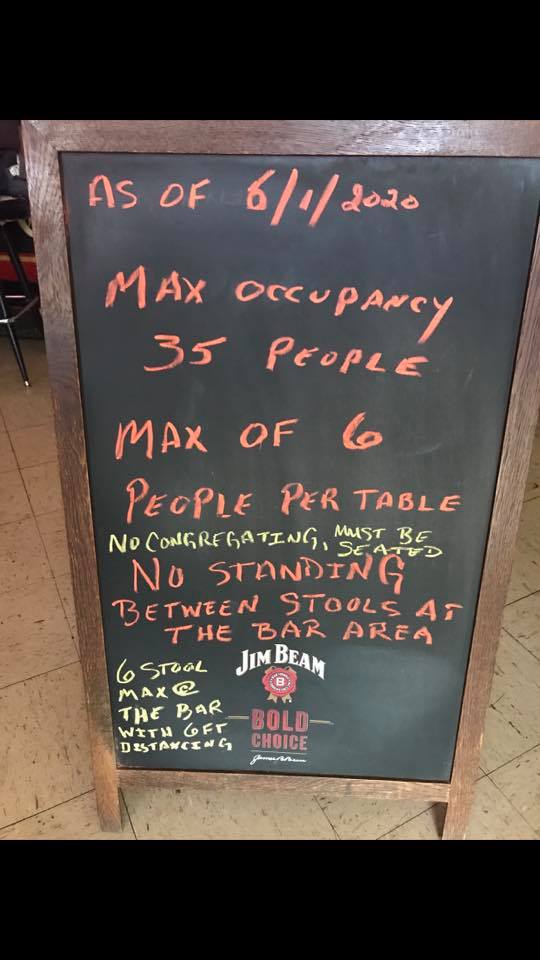 AS OF 6/1/2020
MAX OCCUPANCY
35 PEOPLE
MAX OF 6
PEOPLE PER TABLE
NO CONGREGATING, MUST BE
SEATED
NO STANDING
BETWEEN STOOLS AT
THE BAR AREA
6 STOOL
MAX @
THE BAR
WITH 6FT
DISTANCING
JIM BEAM
B
BOLD
CHOICE
James B. Beam